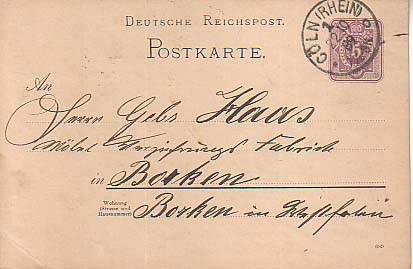 DEUTSCHE REICHSPOST.
POSTKARTE.
CÖLN (RHEIN)
An
Herrn Gebr Haas
Möbel Verzierungs Fabrick
in Borken
Wohnung
(Strasse und
Hausnummer)
Borken in Westfalen